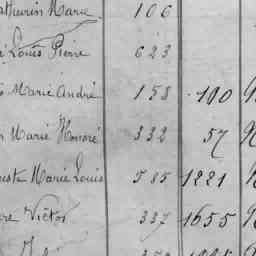 athurin Marie 106
Louis Pierre 623
Marie André 158 190
Marie Honoré 332 57
uste Marie Louis 585 1221
re Victor 337 1655